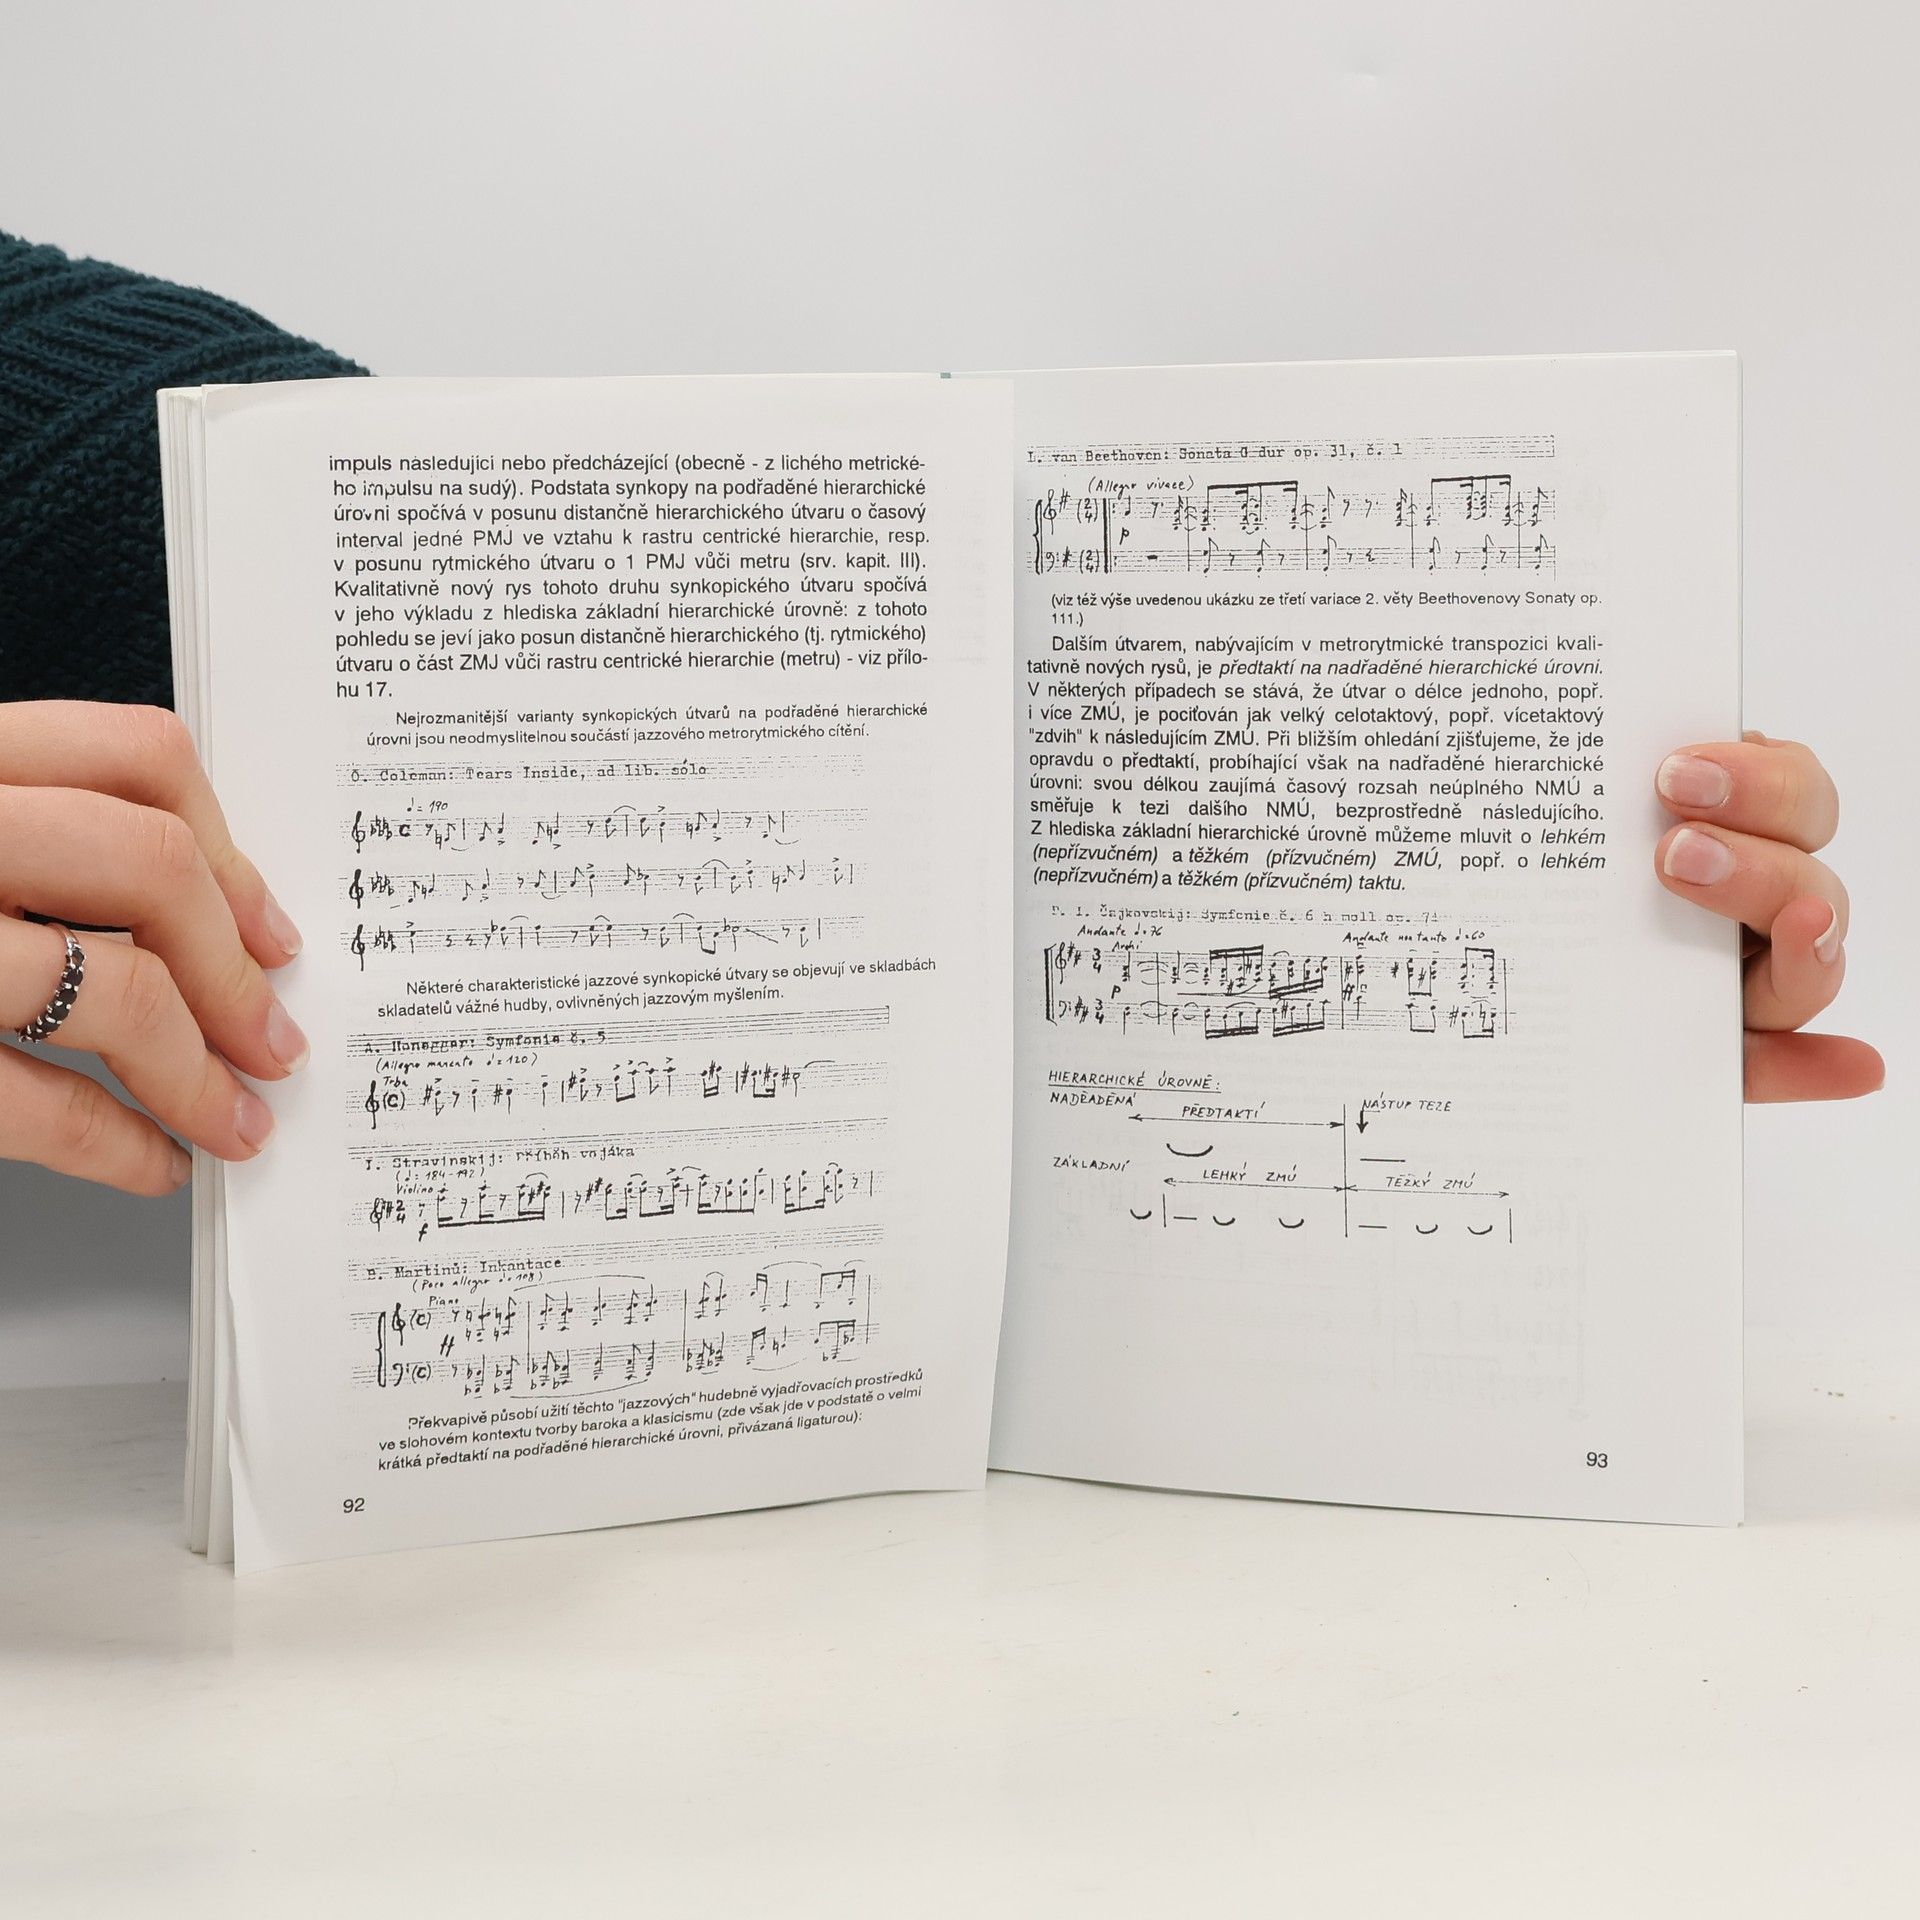 impuls následující nebo předcházející (obecně - z lichého metrické-
ho impulsu na sudý). Podstata synkopy na podřaděné hierarchické
úrovni spočívá v posunu distančně hierarchického útvaru o časový
interval jedné PMJ ve vztahu k rastru centrické hierarchie, resp.
v posunu rytmického útvaru o 1 PMJ vůči metru (srv. kapit. III).
Kvalitativně nový rys tohoto druhu synkopického útvaru spočívá
v jeho výkladu z hlediska základní hierarchické úrovně: z tohoto
pohledu se jeví jako posun distančně hierarchického (tj. rytmického)
útvaru o část ZMJ vůči rastru centrické hierarchie (metru) - viz přílo-
hu 17.
Nejrozmanitější varianty synkopických útvarů na podřaděné hierarchické
úrovni jsou neodmyslitelnou součástí jazzového metrorytmického cítění.
O. Coleman: Tears Inside, ad lib. sólo
♩= 190
Některé charakteristické jazzové synkopické útvary se objevují ve skladbách
skladatelů vážné hudby, ovlivněných jazzovým myšlením.
A. Honegger: Symfonie č. 5
(Allegro marcato ♩=120)
Trba
I. Stravinskij: Příběh vojáka
(♩=184-192)
Violino
f
B. Martinů: Inkantace
(Poco allegro ♩=108)
Piano
ff
Překvapivě působí užití těchto "jazzových" hudebně vyjadřovacích prostředků
ve slohovém kontextu tvorby baroka a klasicismu (zde však jde v podstatě o velmi
krátká předtaktí na podřaděné hierarchické úrovni, přivázaná ligaturou):
92
L. van Beethoven: Sonata G dur op. 31, č. 1
(Allegro vivace)
p
(viz též výše uvedenou ukázku ze třetí variace 2. věty Beethovenovy Sonaty op.
111.)
Dalším útvarem, nabývajícím v metrorytmické transpozici kvali-
tativně nových rysů, je předtaktí na nadřaděné hierarchické úrovni.
V některých případech se stává, že útvar o délce jednoho, popř.
i více ZMÚ, je pociťován jak velký celotaktový, popř. vícetaktový
"zdvih" k následujícím ZMÚ. Při bližším ohledání zjišťujeme, že jde
opravdu o předtaktí, probíhající však na nadřaděné hierarchické
úrovni: svou délkou zaujímá časový rozsah neúplného NMÚ a
směřuje k tezi dalšího NMÚ, bezprostředně následujícího.
Z hlediska základní hierarchické úrovně můžeme mluvit o lehkém
(nepřízvučném) a těžkém (přízvučném) ZMÚ, popř. o lehkém
(nepřízvučném) a těžkém (přízvučném) taktu.
P. I. Čajkovskij: Symfonie č. 6 h moll op. 74
Andante ♩=76
Andante non tanto ♩=60
Archi
p
ff
HIERARCHICKÉ ÚROVNĚ:
NADŘADĚNÁ
PŘEDTAKTÍ
NÁSTUP TEZE
ZÁKLADNÍ
LEHKÝ ZMÚ
TĚŽKÝ ZMÚ
93